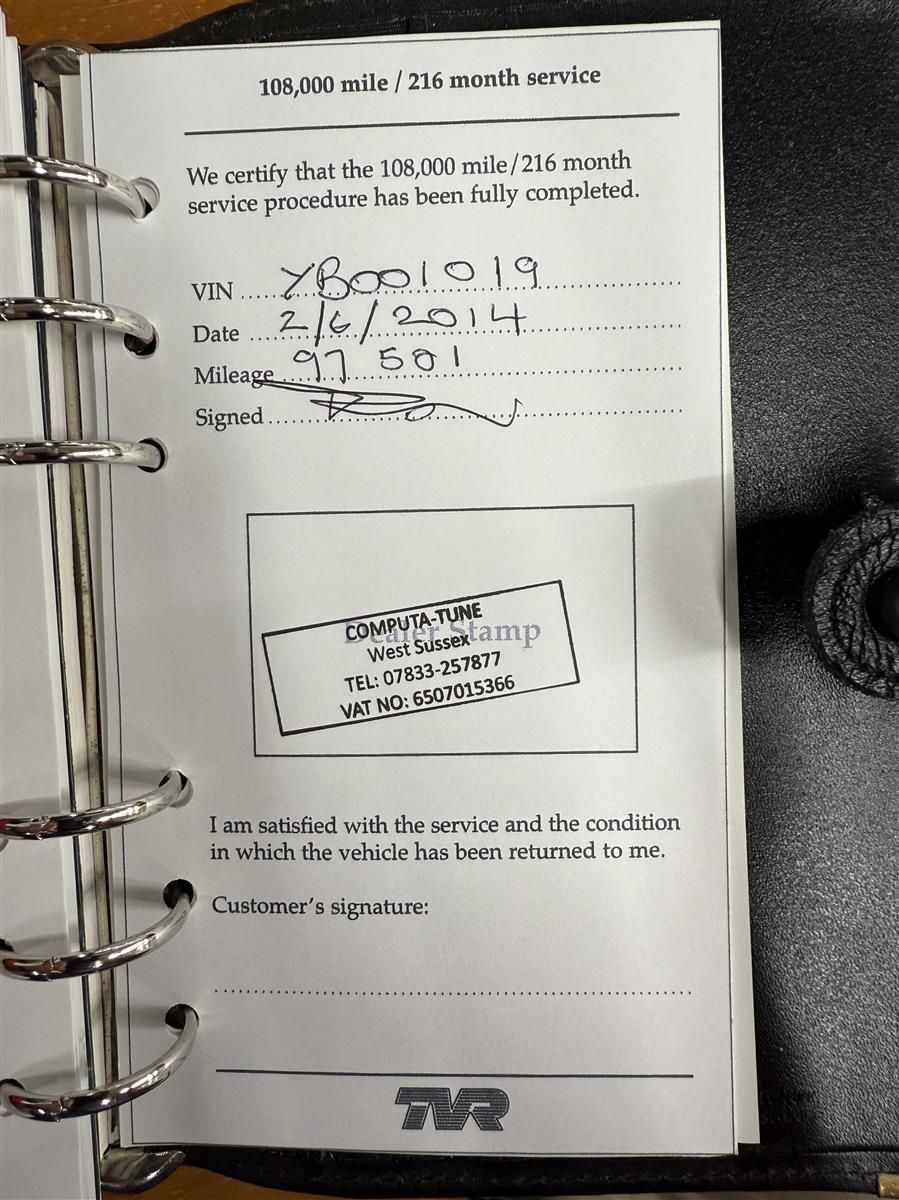 108,000 mile / 216 month service
We certify that the 108,000 mile/216 month
service procedure has been fully completed.
VIN YB001019
Date 2/6/2014
Mileage 97 501
Signed
Dealer Stamp
COMPUTA-TUNE
West Sussex
TEL: 07833-257877
VAT NO: 6507015366
I am satisfied with the service and the condition
in which the vehicle has been returned to me.
Customer's signature:
TVR